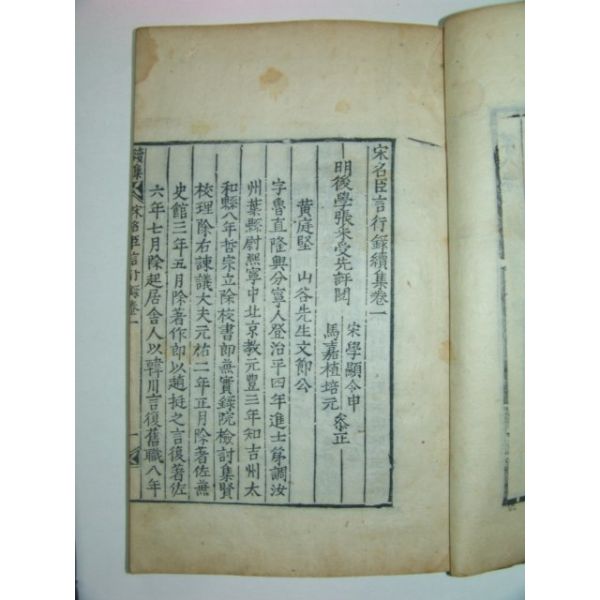 宋名臣言行錄續集卷一
明後學張采受先評閱
宋學顯令申
馬嘉植培元 叅正
黃庭堅 山谷先生文節公
字魯直隆興分寧人登治平四年進士第調汝
州葉縣尉熙寧中北京教元豐三年知吉州太
和縣八年哲宗立除校書郎兼實錄院檢討集賢
校理除右諫議大夫元祐二年正月除著佐兼
史館三年五月除著作郎以趙挺之言復著佐
六年七月除起居舍人以韓川言復舊職八年
續集 宋名臣言行錄卷一
一